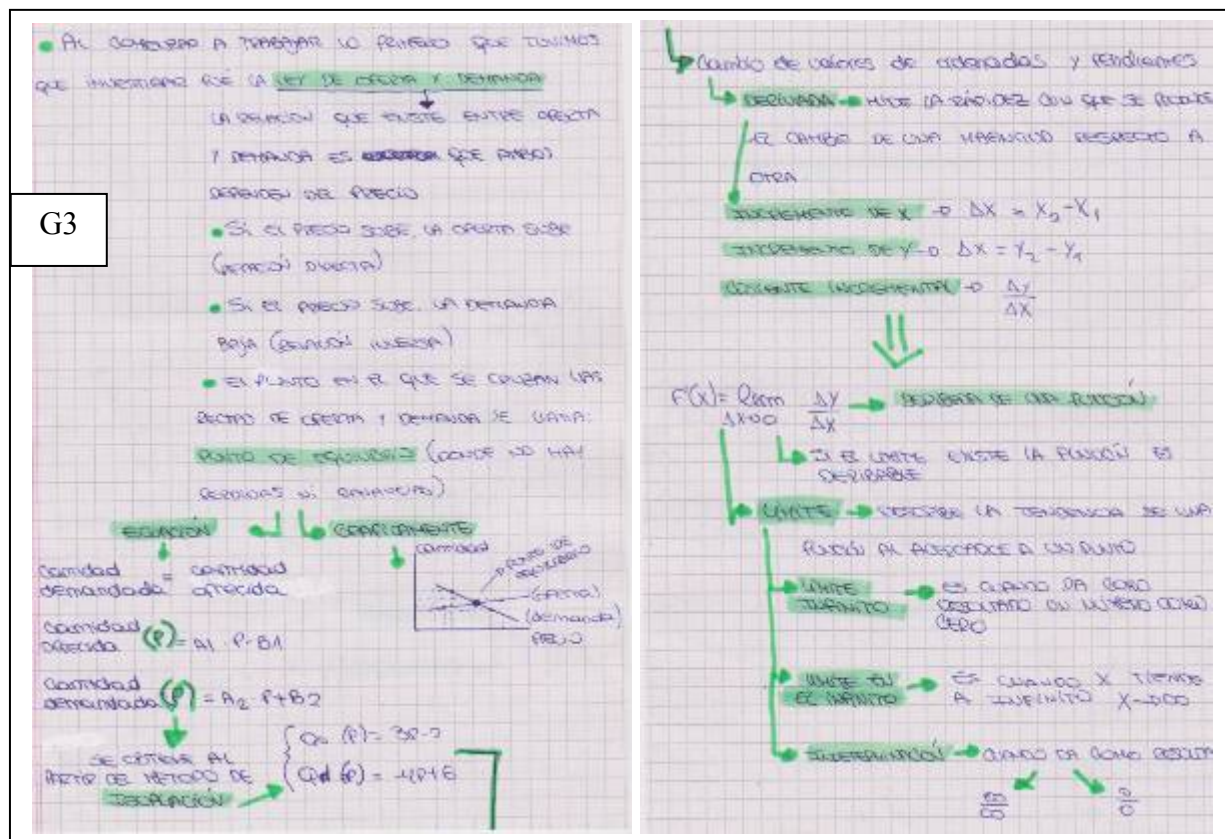 • AL COMENZAR A TRABAJAR LO PRIMERO QUE TUVIMOS
QUE INVESTIGAR FUE LA LEY DE OFERTA Y DEMANDA
LA RELACIÓN QUE EXISTE ENTRE OFERTA
Y DEMANDA ES QUE AMBOS
DEPENDEN DEL PRECIO
• Si EL PRECIO SUBE, LA OFERTA SUBE
(RELACIÓN DIRECTA)
• Si EL PRECIO SUBE, LA DEMANDA
BAJA (RELACIÓN INVERSA)
• El PUNTO EN EL QUE SE CRUZAN LAS
RECTAS DE OFERTA Y DEMANDA SE LLAMA:
PUNTO DE EQUILIBRIO (DONDE NO HAY
PERDIDAS Ni GANANCIAS)
G3
ECUACIÓN
GRAFICAMENTE
cantidad demandada = cantidad ofrecida
cantidad
PUNTO DE EQUILIBRIO
(OFERTA)
(demanda)
PRECIO
cantidad ofrecida (P) = A1 . P - B1
cantidad demandada (P) = A2 . P + B2
SE OBTIENE AL
PARTIR DEL METODO DE
IGUALACIÓN
(P) = 3P-2
Qd (P) = -4P+6
Cambio de valores de ordenadas y pendientes
DERIVADA → MIDE LA RÁPIDEZ CON QUE SE PRODUCE
EL CAMBIO DE UNA MAGNITUD RESPECTO A
OTRA
INCREMENTO DE X → ΔX = X2 - X1
INCREMENTO DE Y → ΔX = Y2 - Y1
COCIENTE INCREMENTAL → Δy/ΔX
F'(X) = Lim ΔX→0 ΔY/ΔX → DERIBADA DE UNA FUNCIÓN
SI EL LIMITE EXISTE LA FUNCIÓN ES
DERIBABLE
LIMITE → DESCRIBE LA TENDENCIA DE UNA
FUNCIÓN AL ACERCARCE A UN PUNTO
LIMITE INFINITO → ES CUANDO DA COMO
RESULTADO UN NÚMERO
CERO
LIMITE EN EL INFINITO → ES CUANDO X TIENDE
A INFINITO X→∞
INDETERMINACIÓN → CUANDO DA COMO RESULT
∞/∞ 0/0